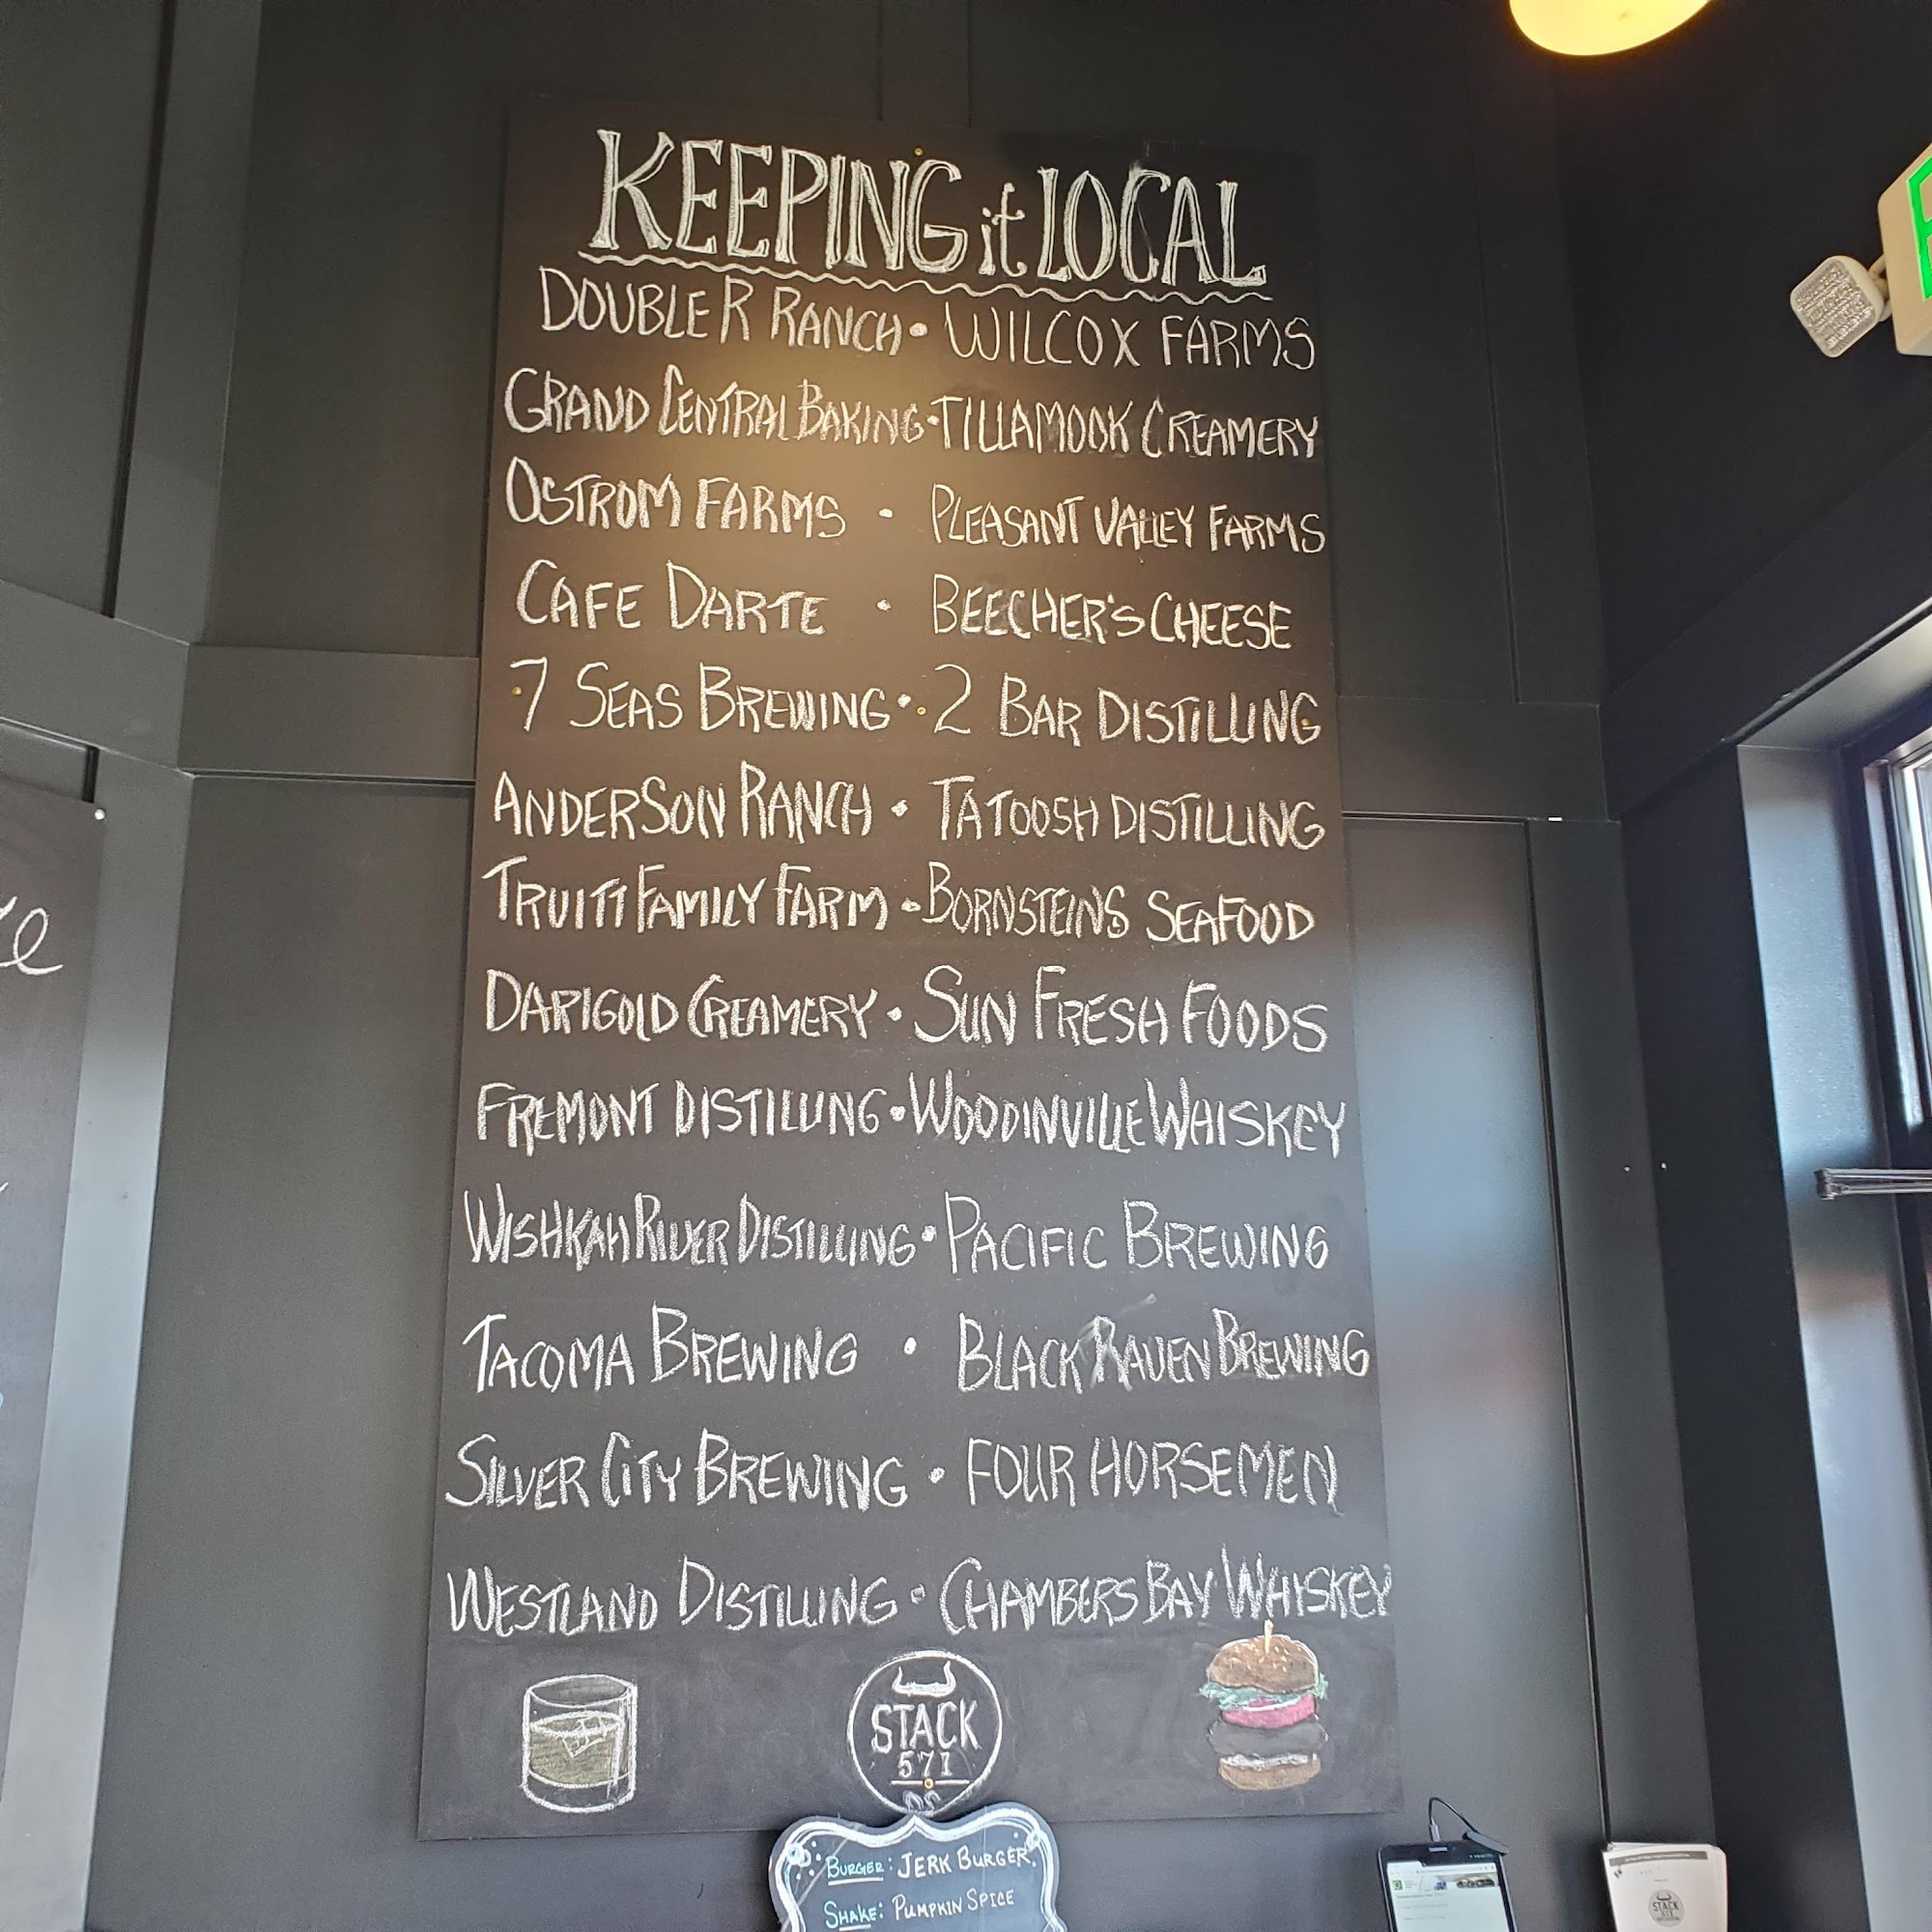 KEEPING it LOCAL
DOUBLE R RANCH • WILCOX FARMS
GRAND CENTRAL BAKING • TILLAMOOK CREAMERY
OSTROM FARMS • PLEASANT VALLEY FARMS
CAFE DARTE • BEECHER'S CHEESE
7 SEAS BREWING • 2 BAR DISTILLING
ANDERSON RANCH • TATOOSH DISTILLING
TRUITT FAMILY FARM • BORNSTEINS SEAFOOD
DARIGOLD CREAMERY • SUN FRESH FOODS
FREMONT DISTILLING • WOODINVILLE WHISKEY
WISHKAH RIVER DISTILLING • PACIFIC BREWING
TACOMA BREWING • BLACK RAVEN BREWING
SILVER CITY BREWING • FOUR HORSEMEN
WESTLAND DISTILLING • CHAMBERS BAY WHISKEY
STACK
571
BURGER: JERK BURGER
SHAKE: PUMPKIN SPICE
STACK
571